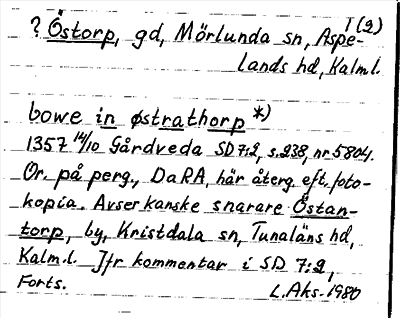 1 (2)
? Östorp, gd, Mörlunda sn, Aspe-
lands hd, Kalm.l.
bowe in østrathorp *)
1357 14/10 Gårdveda SD 7:2, s. 238, nr 5804.
Or. på perg., DaRA, här återg. eft. foto-
kopia. Avser kanske snarare Östan-
torp, by, Kristdala sn, Tunaläns hd,
Kalm.l. Jfr kommentar i SD 7:2,
Forts. L. Aks. 1980